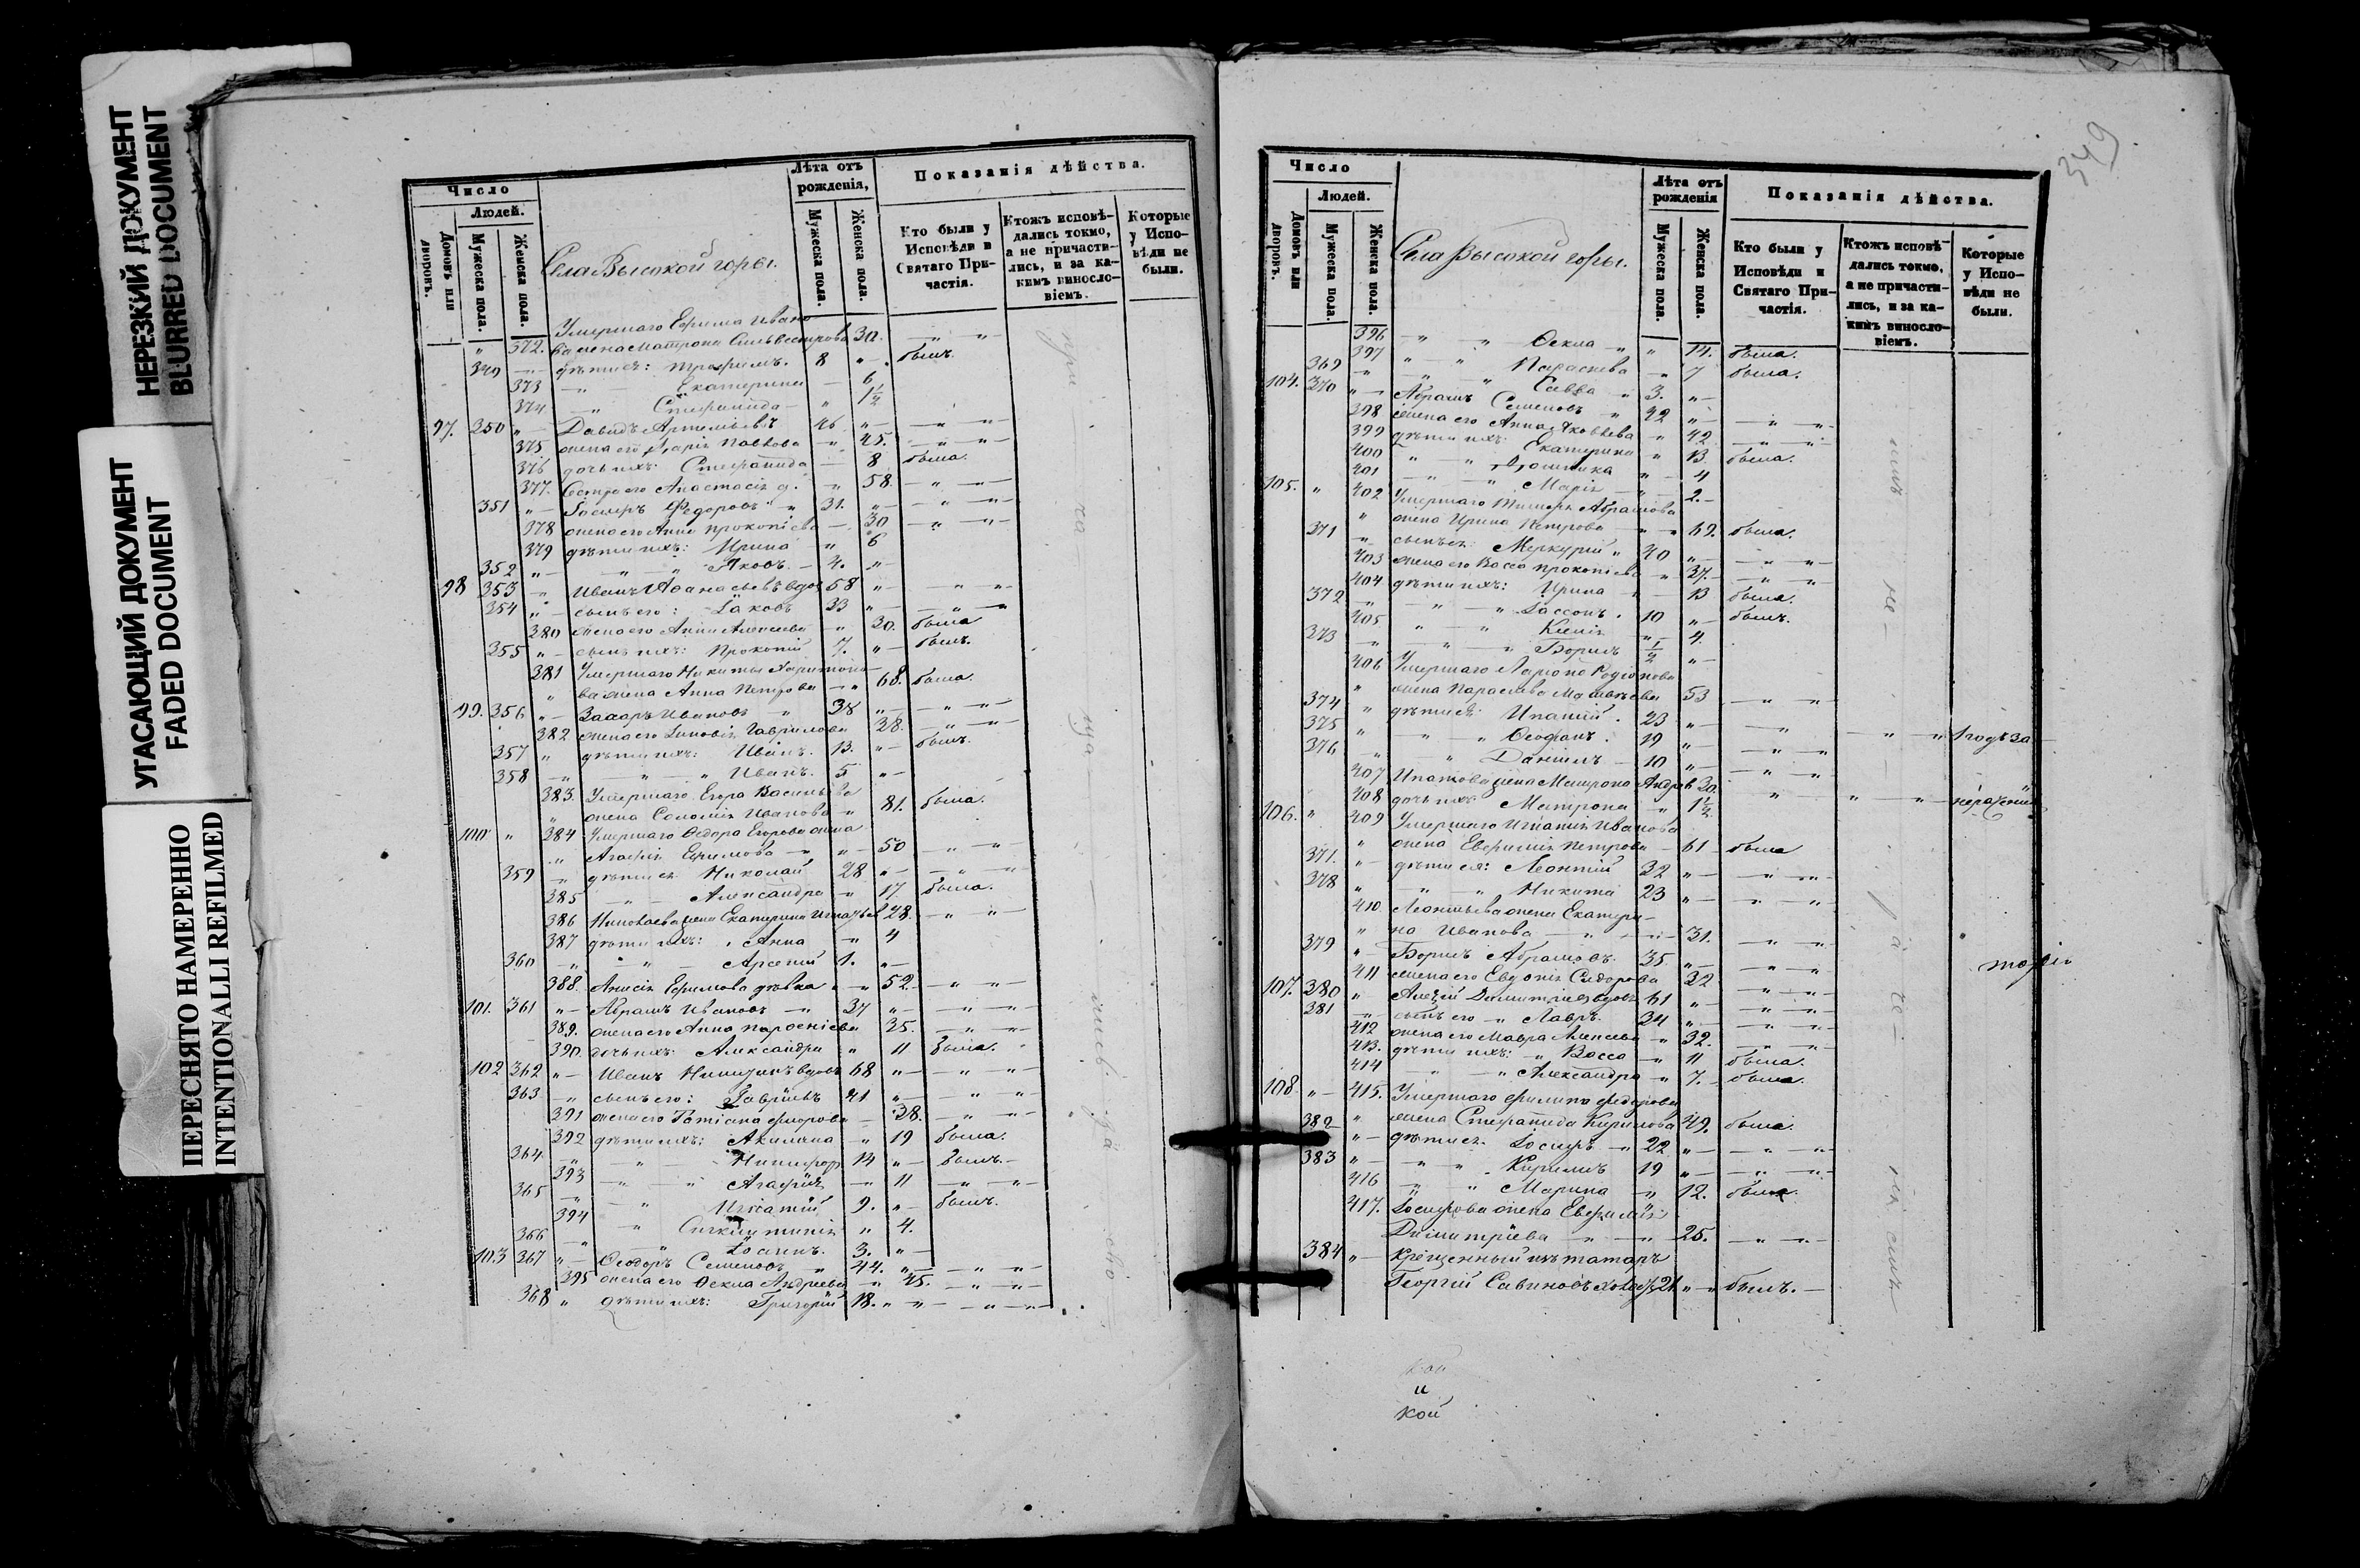 НЕРЕЗКИЙ ДОКУМЕНТ
BLURRED DOCUMENT
УГАСАЮЩИЙ ДОКУМЕНТ
FADED DOCUMENT
ПЕРЕСНЯТО НАМЕРЕННО
INTENTIONALLI REFILMED
Число
Людей.
Домовъ или дворовъ.
Мужеска пола.
Женска пола.
Села Высокой горы.
Лѣта отъ рожденія,
Мужеска пола.
Женска пола.
Показанія дѣйства.
Кто были у Исповѣди и Святаго Причастія.
Ктожъ исповѣ-
дались токмо,
а не причасти-
лись, и за ка-
кимъ винosло-
віемъ.
Которые у Испо-
вѣди не были.
Умершаго Ефима Ивано
" 372. ва жена Матрона Сильвестрова 30. — " "
349 — дѣти ея: Трофимъ. 8 " — былъ.
373 — " Екатерина — 6
374 — " Стефанида — " 1½
97. 350 " — Давидъ Артемьевъ 46 " — " "
375 жена его Марія Павлова — " 45. — " "
376 дочь ихъ: Стефанида — 8 была.
377. Сестра его Анастасія д. — " 58. — " "
351 " — Іосифъ Федоровъ " 31. " — " "
378 жена его Анна Прокопіева — 30 — " "
379 дѣти ихъ: Ирина — " 6
352 " — " Яковъ. — 4. " —
98 353 — " Иванъ Афанасьевъ вдов 58 " — " "
354 " — сынъ его: Іаковъ 33 " — " "
380 жена его Анна Алексеева " 30. была
355 " — сынъ ихъ: Прокопій 7. " — былъ.
381 Умершаго Никиты Харитоно-
" ва жена Анна Петрова — " 68. была.
99. 356 " — Захаръ Ивановъ " 38 " — " "
382 жена его Зиновія Гаврилова 38. — " "
357 " дѣти ихъ: Иванъ. 13. " — былъ.
358 — " — " Иванъ. 5 " —
383. Умершаго Егора Васильева
" жена Соломія Иванова " 81. была.
100 " 384 Умершаго Федора Егорова жена
" Агафія Ефимова — " " — 50 — " "
359 — дѣти ея Николай 28 " — " "
385 — " — Александра " 17 была.
386 Николаева жена Екатерина Игнатьев 28. — " "
387 дѣти ихъ: " Анна — " 4
360 — " " — Арсений 1. " —
388. Анисія Ефимова дѣвка " — " 52. — " "
101. 361 " — Абрамъ Ивановъ — " 37 " — " "
389. жена его Анна Парфеніева 35. — " "
390. дочь ихъ: Александра " 11 была.
102 362 " — Иванъ Никитинъ вдовъ 68 " — " "
363 — " сынъ его: Гавріилъ 41 " — " "
391 жена его Татіана Фирова — 38. — " "
392 дѣти ихъ: Акилина — " 19 была.
364 — " — Никифор 14 " — былъ.
393 — " " Агафія — " 11 — " "
365 — " Игнатій 9. " — былъ.
394 " Сигклитикія " 4.
366 — " — Іосифъ. 3. " —
103 367 " — Феодоръ Семеновъ " 44. " — " "
395 жена его Фекла Андреева — " 45. — " "
368 " дѣти ихъ: Григорій 18. " " — " "
349
Число
Людей.
Домовъ или дворовъ.
Мужеска пола.
Женска пола.
Села Высокой горы.
Лѣта отъ рожденія
Мужеска пола.
Женска пола.
Показанія дѣйства.
Кто были у Исповѣди и Святаго Причастія.
Ктожъ исповѣ-
дались токмо,
а не причасти-
лись, и за ка-
кимъ винosло-
віемъ.
Которые у Испо-
вѣди не были.
396 — " — " Фекла — " " 14. была.
397 " " Параскева — " 7 была.
369 — " — " Савва " 3. " —
104. 370 " — Абрамъ Семеновъ " 42 " — " "
398 жена его Анна Яковлева " 42 — " "
399 дѣти ихъ: Екатерина " 13 была.
400 " — " " — 4
401 — " — " Марія — " 2. —
105. " 402 Умершаго Абрамова
" жена Ирина Петрова — " 62. была.
371 " сынъ ея: Меркурій " 40 " — " "
403 жена его Васса Прокопіева — " 37. — " "
404 дѣти ихъ: Ирина — " 13 была.
372 — " — " Іассонъ. 10 " — былъ.
405 " " " — 4.
373 — " " Борисъ ½ " —
406 Умершаго Ларіона Родіонова
" жена Параскева Матвѣева 53 — " "
374 " дѣти ея Ипатій. 23 " — " — " " 1 годъ за
375 " — " Феофанъ. 19 " — " "
376 — " — " Даніилъ — 10 " — " "
407 Ипатова жена Матрона Андрев 20. " " — " нераденіе
408 дочь ихъ Матрона — " 1½
106. " 409 Умершаго Игнатія Иванова
" жена Евфимія Петрова — 61 — была
377. " дѣти ея: Леонтій 32 " — " "
378 " — " Никита 23 " — " "
410. Леонтьева жена Екатери-
" на Иванова — " — 31. — " "
379 " — Борисъ Абрамовъ. 35. " — " " тожѣ
411 жена его Евдокія Сидорова 32 — " "
107. 380 " Алексій Димитріев вдов. 61 " — " "
381 — " сынъ его " Лавръ. 34 " — " "
412 жена его Мавра Алексеева " 32. — " "
413. дѣти ихъ: " Васса — " 11 была.
414 — " — " Александра " 7. — была.
108. " — 415. Умершаго Филипа Федорова
" жена Стефанида Кирилова 49. была.
382 " — дѣти ея: Іосифъ — " 22 " — " "
383 " — " " Кирилъ 19 " — " "
416 — " " Марина — " 12. была.
417. Іосифова жена Евфимія
Димитріева — " — " 25. — " "
384 " — Крещенный изъ татаръ
Георгій Савиновъ 21 " — " былъ. —
кой
и
кой